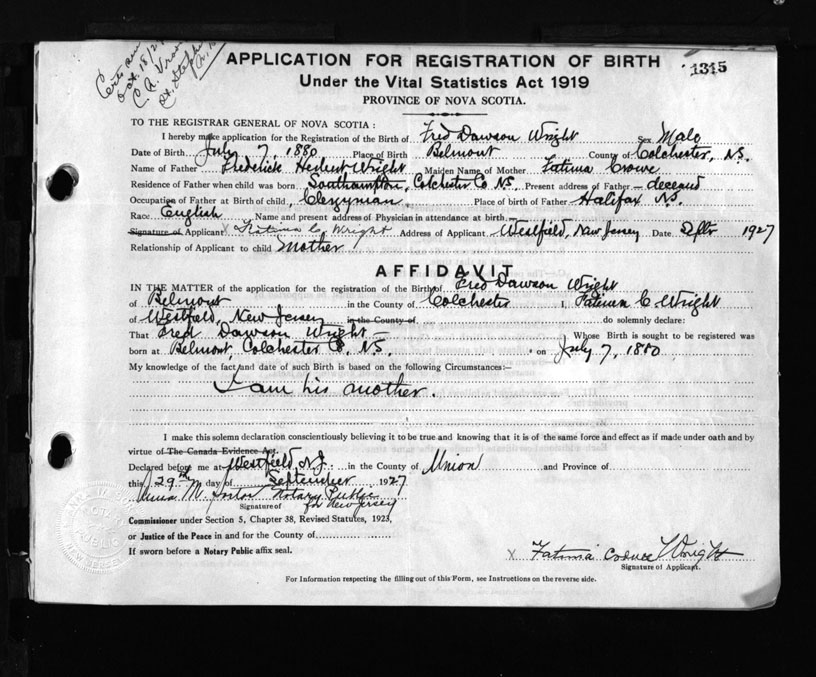 Oct. 18/27
C. A.
St. Stephen
APPLICATION FOR REGISTRATION OF BIRTH
1315
Under the Vital Statistics Act 1919
PROVINCE OF NOVA SCOTIA.
TO THE REGISTRAR GENERAL OF NOVA SCOTIA :
I hereby make application for the Registration of the Birth of Fred Dawson Wright Sex Male
Date of Birth July 7, 1880 Place of Birth Belmont County of Colchester, N.S.
Name of Father Frederick Herbert Wright Maiden Name of Mother Fatima Crowe
Residence of Father when child was born Southampton, Colchester Co N.S. Present address of Father – deceased
Occupation of Father at Birth of child, Clergyman Place of birth of Father Halifax N.S.
Race English Name and present address of Physician in attendance at birth. –
Signature of Applicant X Fatima C. Wright Address of Applicant Westfield, New Jersey Date Septbr 1927
Relationship of Applicant to child Mother
AFFIDAVIT
IN THE MATTER of the application for the registration of the Birth of Fred Dawson Wright
of Belmont in the County of Colchester I, Fatima C. Wright
of Westfield, New Jersey in the County of do solemnly declare:
That Fred Dawson Wright – Whose Birth is sought to be registered was
born at Belmont, Colchester Co. N.S. on July 7, 1880
My knowledge of the fact and date of such Birth is based on the following Circumstances:–
I am his mother.
I make this solemn declaration conscientiously believing it to be true and knowing that it is of the same force and effect as if made under oath and by
virtue of The Canada Evidence Act.
Declared before me at Westfield N.J. in the County of Union and Province of
this 29th day of September 1927
M. Notary Public
Signature of for New Jersey
Commissioner under Section 5, Chapter 38, Revised Statutes, 1923,
or Justice of the Peace in and for the County of
If sworn before a Notary Public affix seal.
X Fatima Wright
Signature of Applicant.
For Information respecting the filling out of this Form, see Instructions on the reverse side.